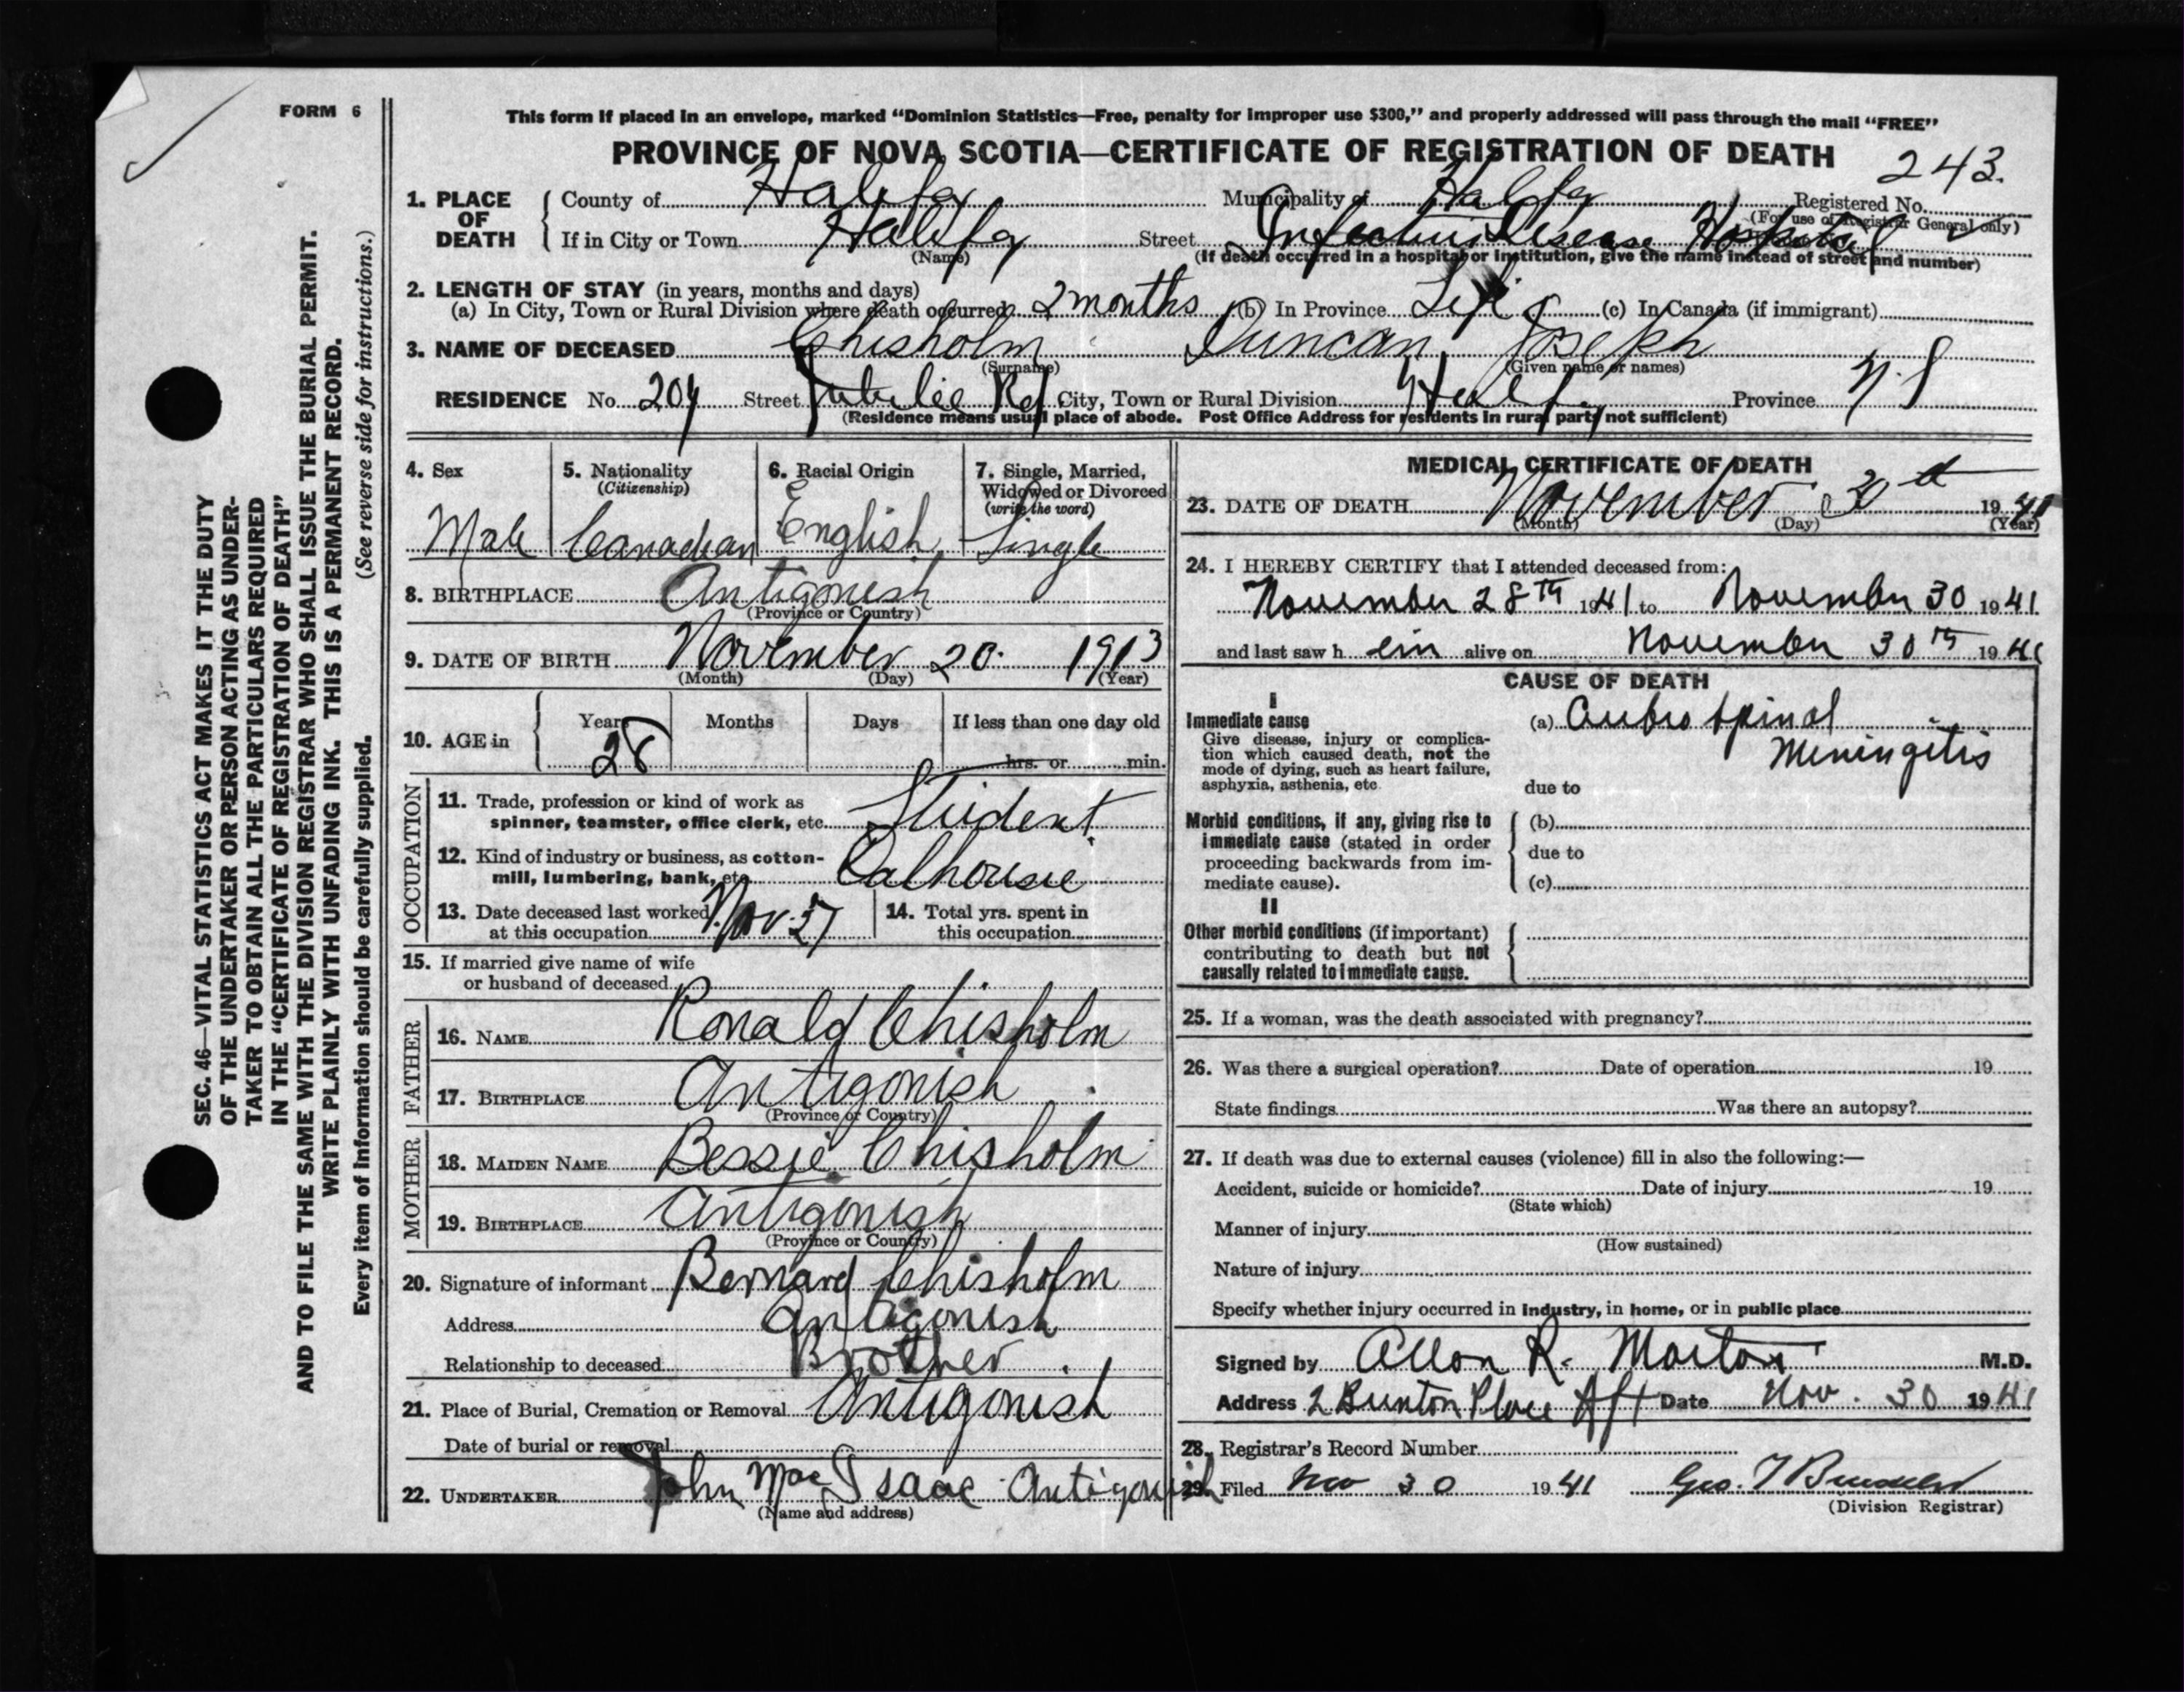 FORM 6
This form if placed in an envelope, marked "Dominion Statistics—Free, penalty for improper use $300," and properly addressed will pass through the mail "FREE"
PROVINCE OF NOVA SCOTIA—CERTIFICATE OF REGISTRATION OF DEATH
243.
1. PLACE OF DEATH County of Halifax Municipality of Halifax Registered No.
(For use of Registrar General only)
If in City or Town Halifax Street Infectious Disease Hospital
(Name) (If death occurred in a hospital or institution, give the name instead of street and number)
2. LENGTH OF STAY (in years, months and days)
(a) In City, Town or Rural Division where death occurred 2 months (b) In Province Life (c) In Canada (if immigrant)
3. NAME OF DECEASED Chisholm Duncan Joseph
(Surname) (Given name or names)
RESIDENCE No. 204 Street Jubilee Rd City, Town or Rural Division Halifax Province N.S
(Residence means usual place of abode. Post Office Address for residents in rural parts not sufficient)
4. Sex
Male
5. Nationality
(Citizenship)
Canadian
6. Racial Origin
English
7. Single, Married,
Widowed or Divorced
(write the word)
Single
8. BIRTHPLACE Antigonish
(Province or Country)
9. DATE OF BIRTH November 20 1913
(Month) (Day) (Year)
10. AGE in Years Months Days If less than one day old
28 hrs. or min.
OCCUPATION
11. Trade, profession or kind of work as
spinner, teamster, office clerk, etc. Student
12. Kind of industry or business, as cotton-
mill, lumbering, bank, etc. Dalhousie
13. Date deceased last worked
at this occupation Nov. 27
14. Total yrs. spent in
this occupation
15. If married give name of wife
or husband of deceased
FATHER
16. NAME Ronald Chisholm
17. BIRTHPLACE Antigonish
(Province or Country)
MOTHER
18. MAIDEN NAME Bessie Chisholm
19. BIRTHPLACE Antigonish
(Province or Country)
20. Signature of informant Bernard Chisholm
Address Antigonish
Relationship to deceased Brother
21. Place of Burial, Cremation or Removal Antigonish
Date of burial or removal
22. UNDERTAKER John MacIsaac Antigonish
(Name and address)
MEDICAL CERTIFICATE OF DEATH
23. DATE OF DEATH November 30th 1941
(Month) (Day) (Year)
24. I HEREBY CERTIFY that I attended deceased from:
November 28th 1941 to November 30 1941
and last saw h eim alive on November 30th 1941
CAUSE OF DEATH
I
Immediate cause
Give disease, injury or complica-
tion which caused death, not the
mode of dying, such as heart failure,
asphyxia, asthenia, etc.
(a) Cerebro spinal
Meningitis
due to
Morbid conditions, if any, giving rise to
immediate cause (stated in order
proceeding backwards from im-
mediate cause).
(b)
due to
(c)
II
Other morbid conditions (if important)
contributing to death but not
causally related to immediate cause.
25. If a woman, was the death associated with pregnancy?
26. Was there a surgical operation? Date of operation 19
State findings Was there an autopsy?
27. If death was due to external causes (violence) fill in also the following:—
Accident, suicide or homicide? Date of injury 19
(State which)
Manner of injury
(How sustained)
Nature of injury
Specify whether injury occurred in industry, in home, or in public place
Signed by Allan R. Morton M.D.
Address 2 Place Date Nov. 30 1941
28. Registrar's Record Number
29. Filed Nov 30 1941 Geo.
(Division Registrar)
SEC. 46—VITAL STATISTICS ACT MAKES IT THE DUTY
OF THE UNDERTAKER OR PERSON ACTING AS UNDER-
TAKER TO OBTAIN ALL THE PARTICULARS REQUIRED
IN THE "CERTIFICATE OF REGISTRATION OF DEATH"
AND TO FILE THE SAME WITH THE DIVISION REGISTRAR WHO SHALL ISSUE THE BURIAL PERMIT.
WRITE PLAINLY WITH UNFADING INK. THIS IS A PERMANENT RECORD.
Every item of information should be carefully supplied. (See reverse side for instructions.)